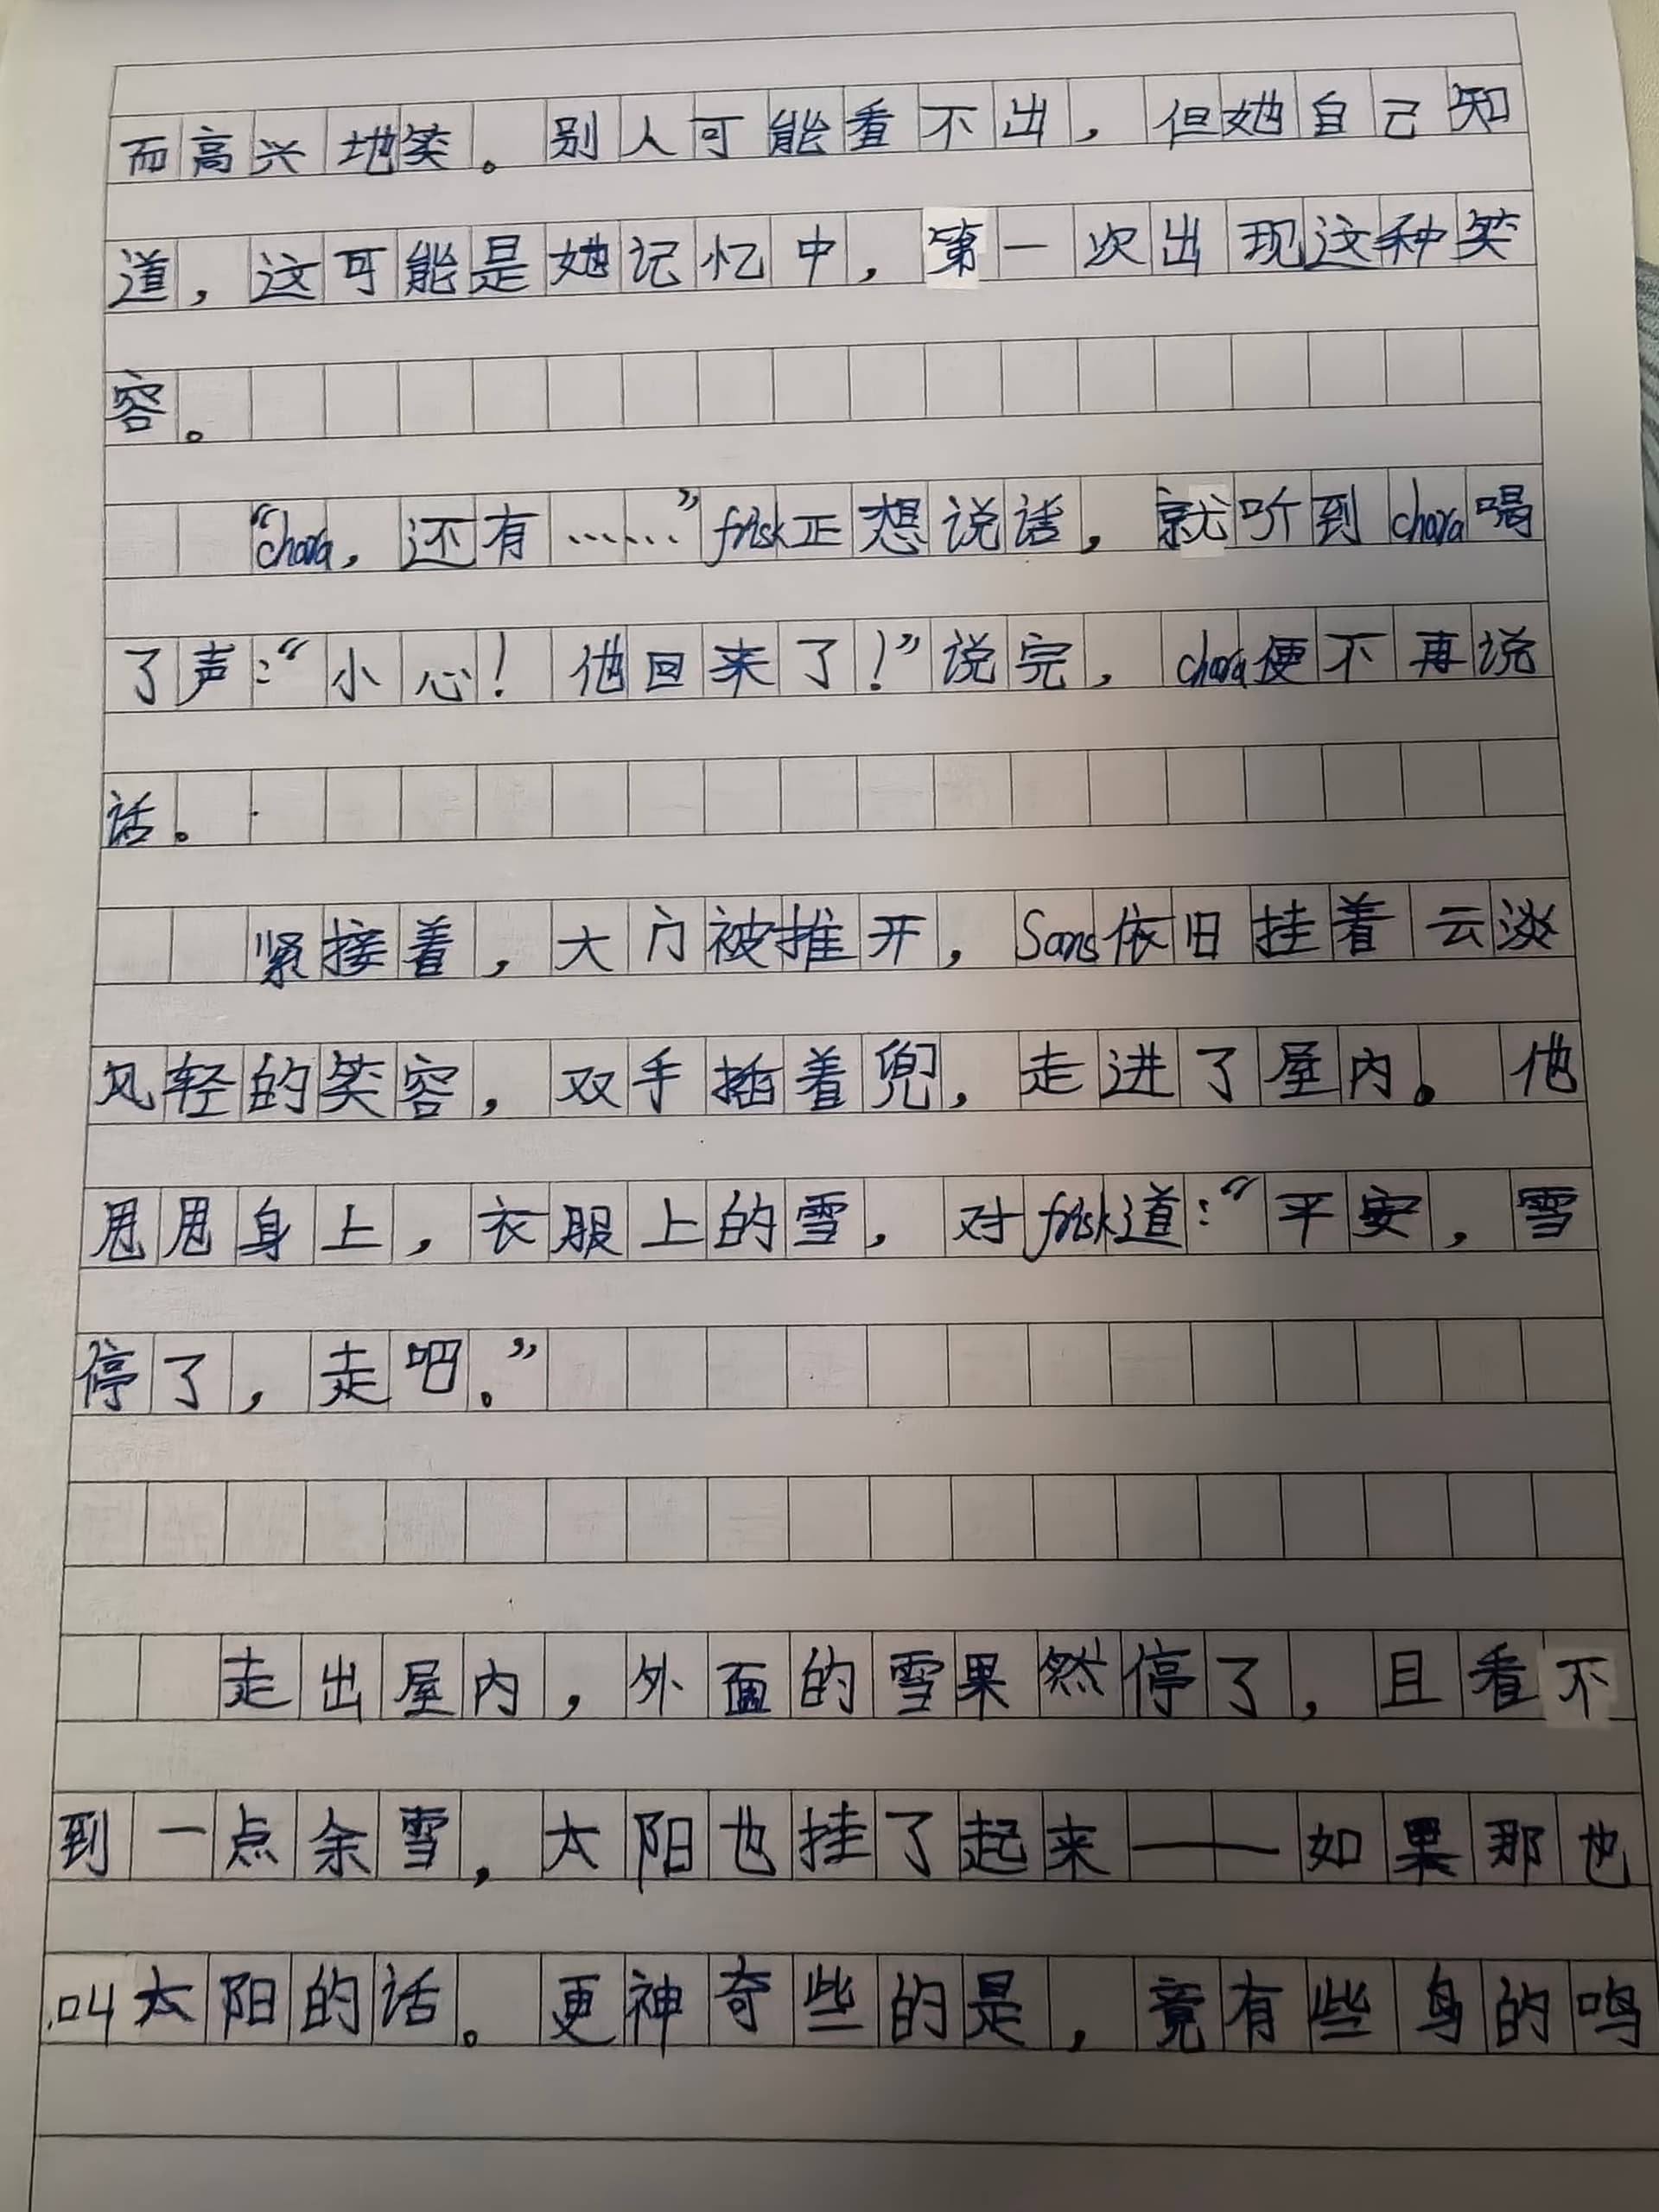 而高兴地笑。别人可能看不出，但她自己知
道，这可能是她记忆中，第一次出现这种笑
容。
“chara，还有……”frisk正想说话，就听到chara喝
了声：“小心！他回来了！”说完，chara便不再说
话。
紧接着，大门被推开，Sans依旧挂着云淡
风轻的笑容，双手插着兜，走进了屋内。他
甩甩身上，衣服上的雪，对frisk道：“平安，雪
停了，走吧。”
走出屋内，外面的雪果然停了，且看不
到一点余雪，太阳也挂了起来——如果那也
叫太阳的话。更神奇些的是，竟有些鸟的鸣